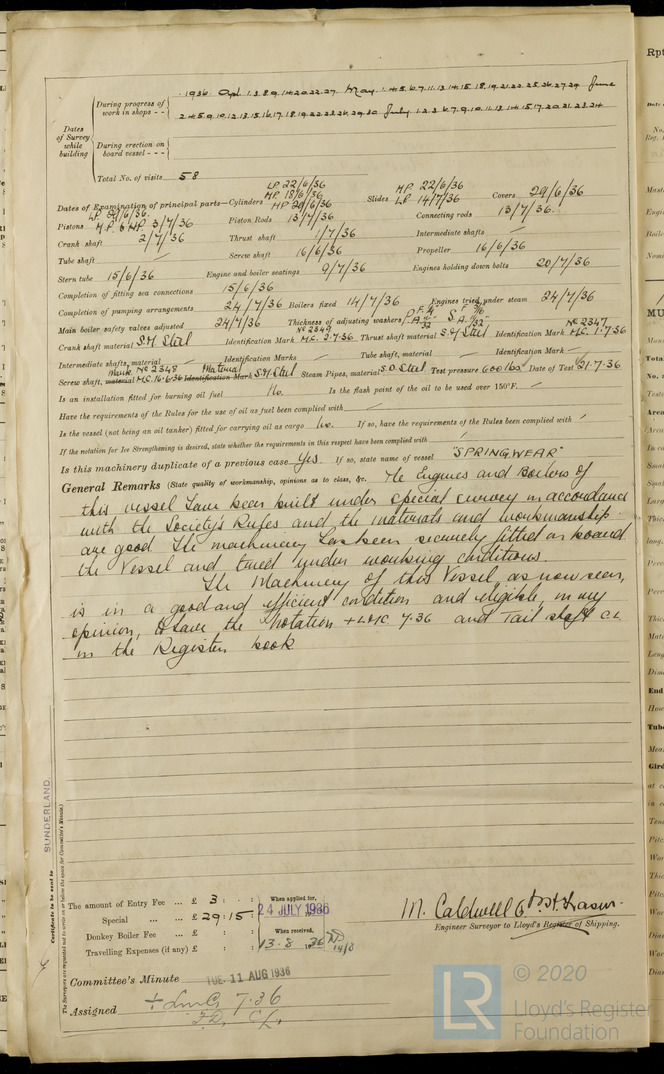 1936. Apl. 1. 3. 8. 9. 14. 20. 22. 27. May 1. 4. 5. 6. 7. 11. 13. 14. 15. 18. 19. 21. 22. 25. 26. 27. 29. June
During progress of work in shops - -
2. 4. 5. 9. 10. 12. 13. 15. 16. 17. 18. 19. 22. 23. 26. 29. 30. July 1. 2. 3. 6. 7. 9. 10. 11. 13. 14. 15. 17. 20. 21. 23. 24
Dates of Survey while building
During erection on board vessel - - -
Total No. of visits 58
Dates of Examination of principal parts—Cylinders LP 22/6/36 MP 18/6/36 HP 29/6/36 Slides MP 22/6/36 LP 14/7/36 Covers 29/6/36
Pistons LP 29/6/36. M.P. & HP 3/7/36 Piston Rods 13/7/36 Connecting rods 13/7/36.
Crank shaft 2/7/36 Thrust shaft 1/7/36 Intermediate shafts —
Tube shaft — Screw shaft 16/6/36 Propeller 16/6/36
Stern tube 15/6/36 Engine and boiler seatings 9/7/36 Engines holding down bolts 20/7/36
Completion of fitting sea connections 15/6/36
Completion of pumping arrangements 24/7/36 Boilers fixed 14/7/36 Engines tried under steam 24/7/36
Main boiler safety valves adjusted 24/7/36 Thickness of adjusting washers
Crank shaft material S.M Steel Identification Mark No 2349 M.C. 2.7.36 Thrust shaft material S.M Steel Identification Mark No 2347 M.C. 1.7.36
Intermediate shafts, material — Identification Marks — Tube shaft, material — Identification Mark —
Screw shaft, material Mark No 2348 M.C. 16.6.36 Identification Mark Material S.M Steel Steam Pipes, material S.D. Steel Test pressure 600 lbs Date of Test 21.7.36
Is an installation fitted for burning oil fuel No. Is the flash point of the oil to be used over 150°F. —
Have the requirements of the Rules for the use of oil as fuel been complied with —
Is the vessel (not being an oil tanker) fitted for carrying oil as cargo No. If so, have the requirements of the Rules been complied with —
If the notation for Ice Strengthening is desired, state whether the requirements in this respect have been complied with —
Is this machinery duplicate of a previous case Yes If so, state name of vessel "SPRINGWEAR"
General Remarks (State quality of workmanship, opinions as to class, &c. The Engines and Boilers of
this vessel have been built under special survey in accordance
with the Society's Rules and the materials and workmanship
are good The machinery has been securely fitted on board
the Vessel and tried under working conditions.
The Machinery of this Vessel, as now seen,
is in a good and efficient condition and eligible, in my
opinion, to have the notation + LMC 7.36 and Tail shaft CL
in the Register book
SUNDERLAND
Certificate to be sent to
(The Surveyors are requested not to write on or below the space for Committee's Minute.)
The amount of Entry Fee ... £ 3 : :
Special ... ... £ 29 : 15 :
Donkey Boiler Fee ... £ : :
Travelling Expenses (if any) £ : :
When applied for,
24 JULY 1936
When received,
13.8 1936
14/8
M. Caldwell
Engineer Surveyor to Lloyd's Register of Shipping.
Committee's Minute TUE. 11 AUG 1936
Assigned + LMC 7.36
F.D. CL.
LR
© 2020
Lloyd's Register
Foundation